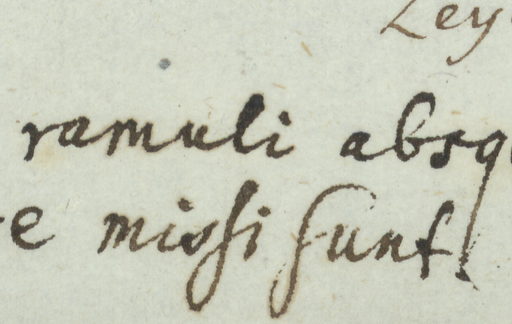 Ley
ramuli absq
e missi sunt